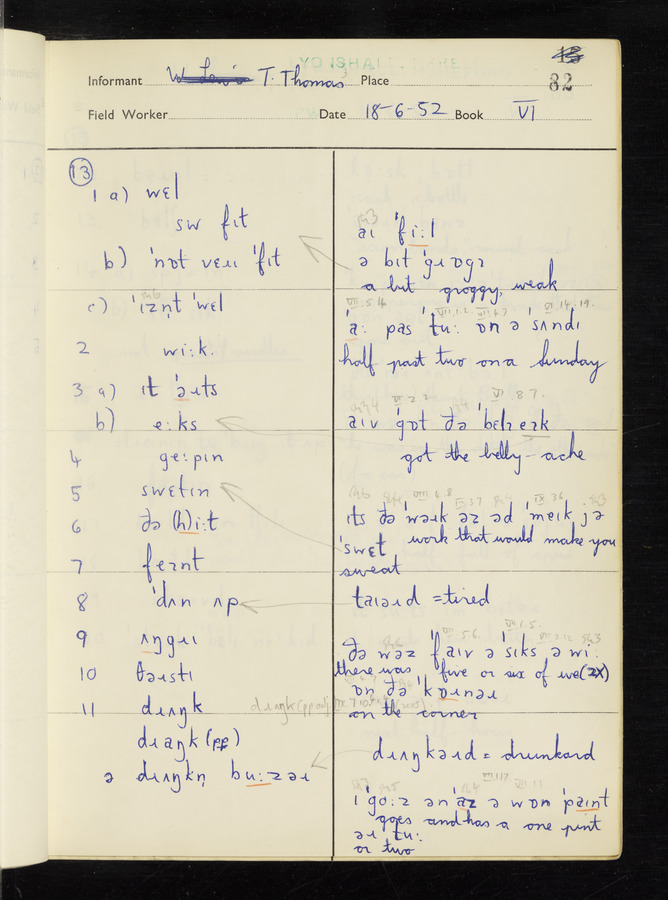 LYONSHALL
15
Informant W Lewis T. Thomas Place 82
Field Worker Date 18-6-52 Book VI
13
1 a) wɛl
sw fɪt
b) 'nɒt vɛɹɪ 'fɪt
c) 'ɪznt 'wɛl
2 wi:k.
3 a) ɪt 'əɪts
b) e:ks
4 ge:pɪn
5 swetɪn
6 ðə (h)i:t
7 feɪnt
8 'dʌn ʌp
9 ʌŋgɹɪ
10 θəɪstɪ
11 dɹɪŋk
dɹaŋk (pp)
ə dɹʌŋkn̩ bu:zəɹ
aɪ 'fi:l
ə bɪt 'gɹɒgɪ
a bit groggy, weak
'a: pas 'tu: ɒn ə 'sʌndɪ
half past two on a Sunday
aɪv 'gɒt ðə 'bɛlɪeɪk
got the belly-ache
ɪts ðə 'wəɹk əz əd 'meɪk jə
'swɛt work that would make you
sweat
taɪəɹd = tired
ðə wəz 'faɪv ə 'sɪks ə wi:
there was five or six of we (2x)
ɒn ðə 'kɒɹnəɹ
on the corner
dɹʌŋkəɹd = drunkard
ɪ 'go:z ən 'az ə wɒn 'paɪnt
goes and has a one pint
əɹ tu:
or two